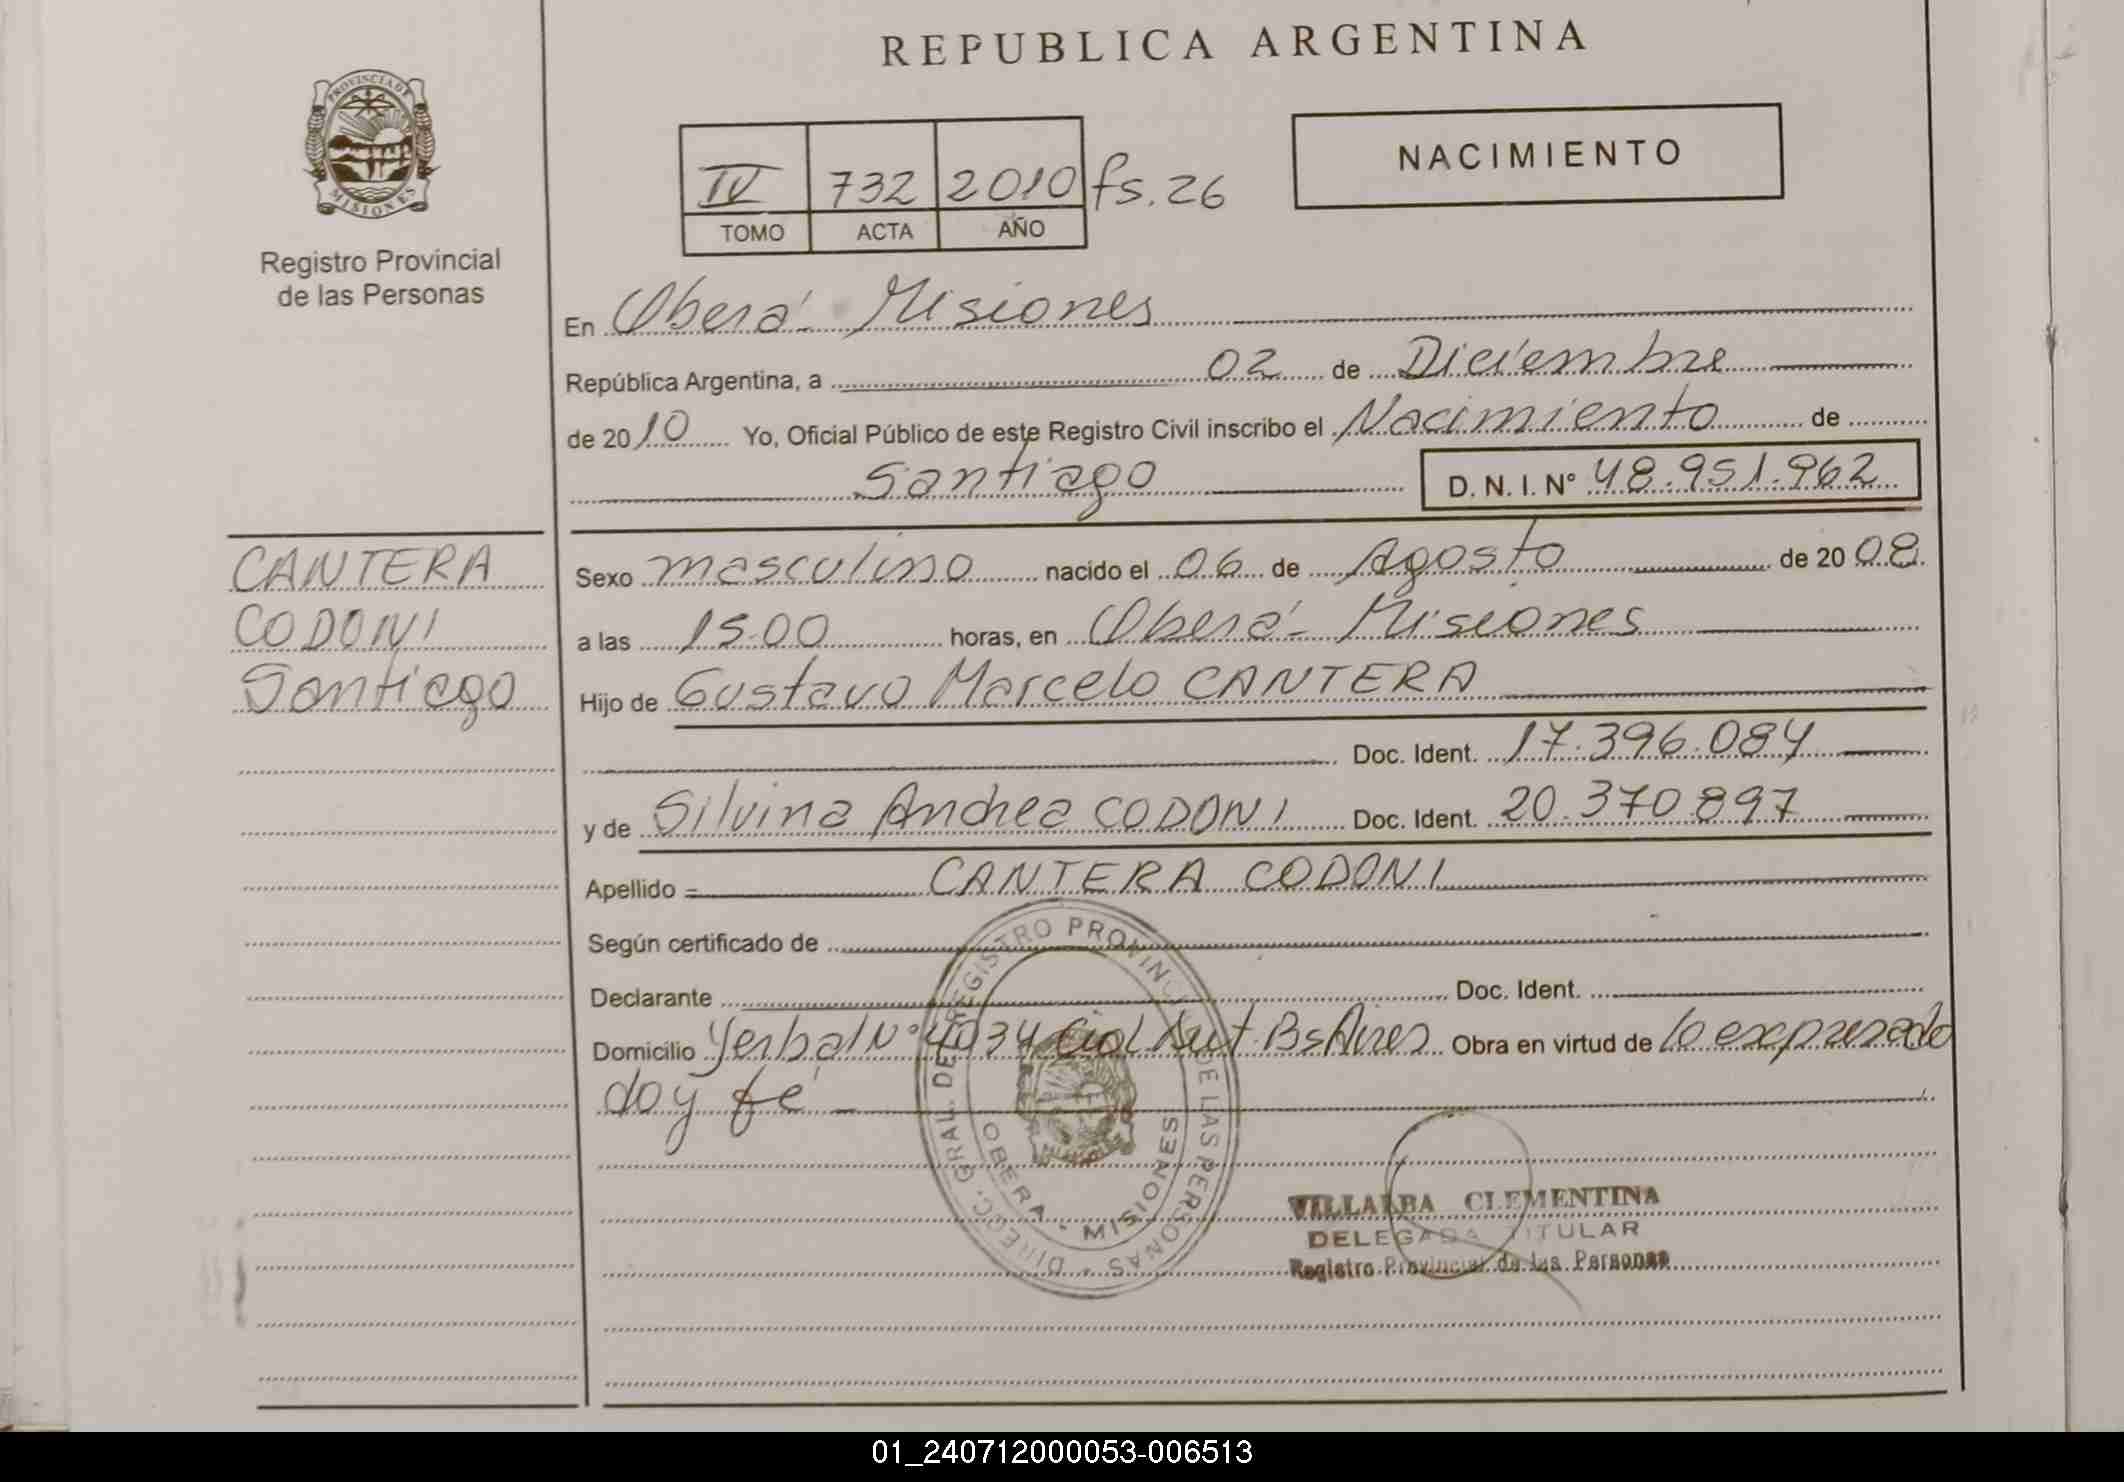 REPUBLICA ARGENTINA
PROVINCIA DE
MISIONES
Registro Provincial
de las Personas
NACIMIENTO
IV 732 2010 fs. 26
TOMO ACTA AÑO
En Oberá Misiones
República Argentina, a 02 de Diciembre
de 2010 Yo, Oficial Público de este Registro Civil inscribo el Nacimiento de
Santiago D. N. I. N° 48.951.962
CANTERA
CODONI
Santiago
Sexo masculino nacido el 06 de Agosto de 2008
a las 15.00 horas, en Oberá - Misiones
Hijo de Gustavo Marcelo CANTERA
Doc. Ident. 17.396.084
y de Silvina Andrea CODONI Doc. Ident. 20.370.897
Apellido = CANTERA CODONI
Según certificado de
Declarante Doc. Ident.
Domicilio Yerbal N° 4934 Aut. Bs Aires Obra en virtud de lo expresado
doy fé
DIRECC. GRAL. DE REGISTRO PROVINCIAL DE LAS PERSONAS
OBERA • MISIONES
VILLALBA CLEMENTINA
DELEGADA TITULAR
Registro Provincial de las Personas
01_240712000053-006513